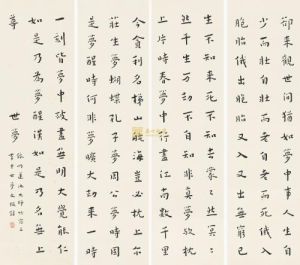 卻來觀世間猶如夢中事人生自
少而壯自壯而老自老而死俄入
胞胎俄出胞胎又入又出無窮已
生不知來死不知去蒙蒙然冥冥
然千生萬劫不自知
上片時春夢中行盡江南數千里
今貪利名梯山航海豈必枕上尔
莊生夢蝴蝶孔子夢周公夢時固
是夢醒時何非夢曠大劫來一時
一刻皆夢中破盡無明大覺能仁
如是乃為夢醒漢如是乃名無上
尊 世夢